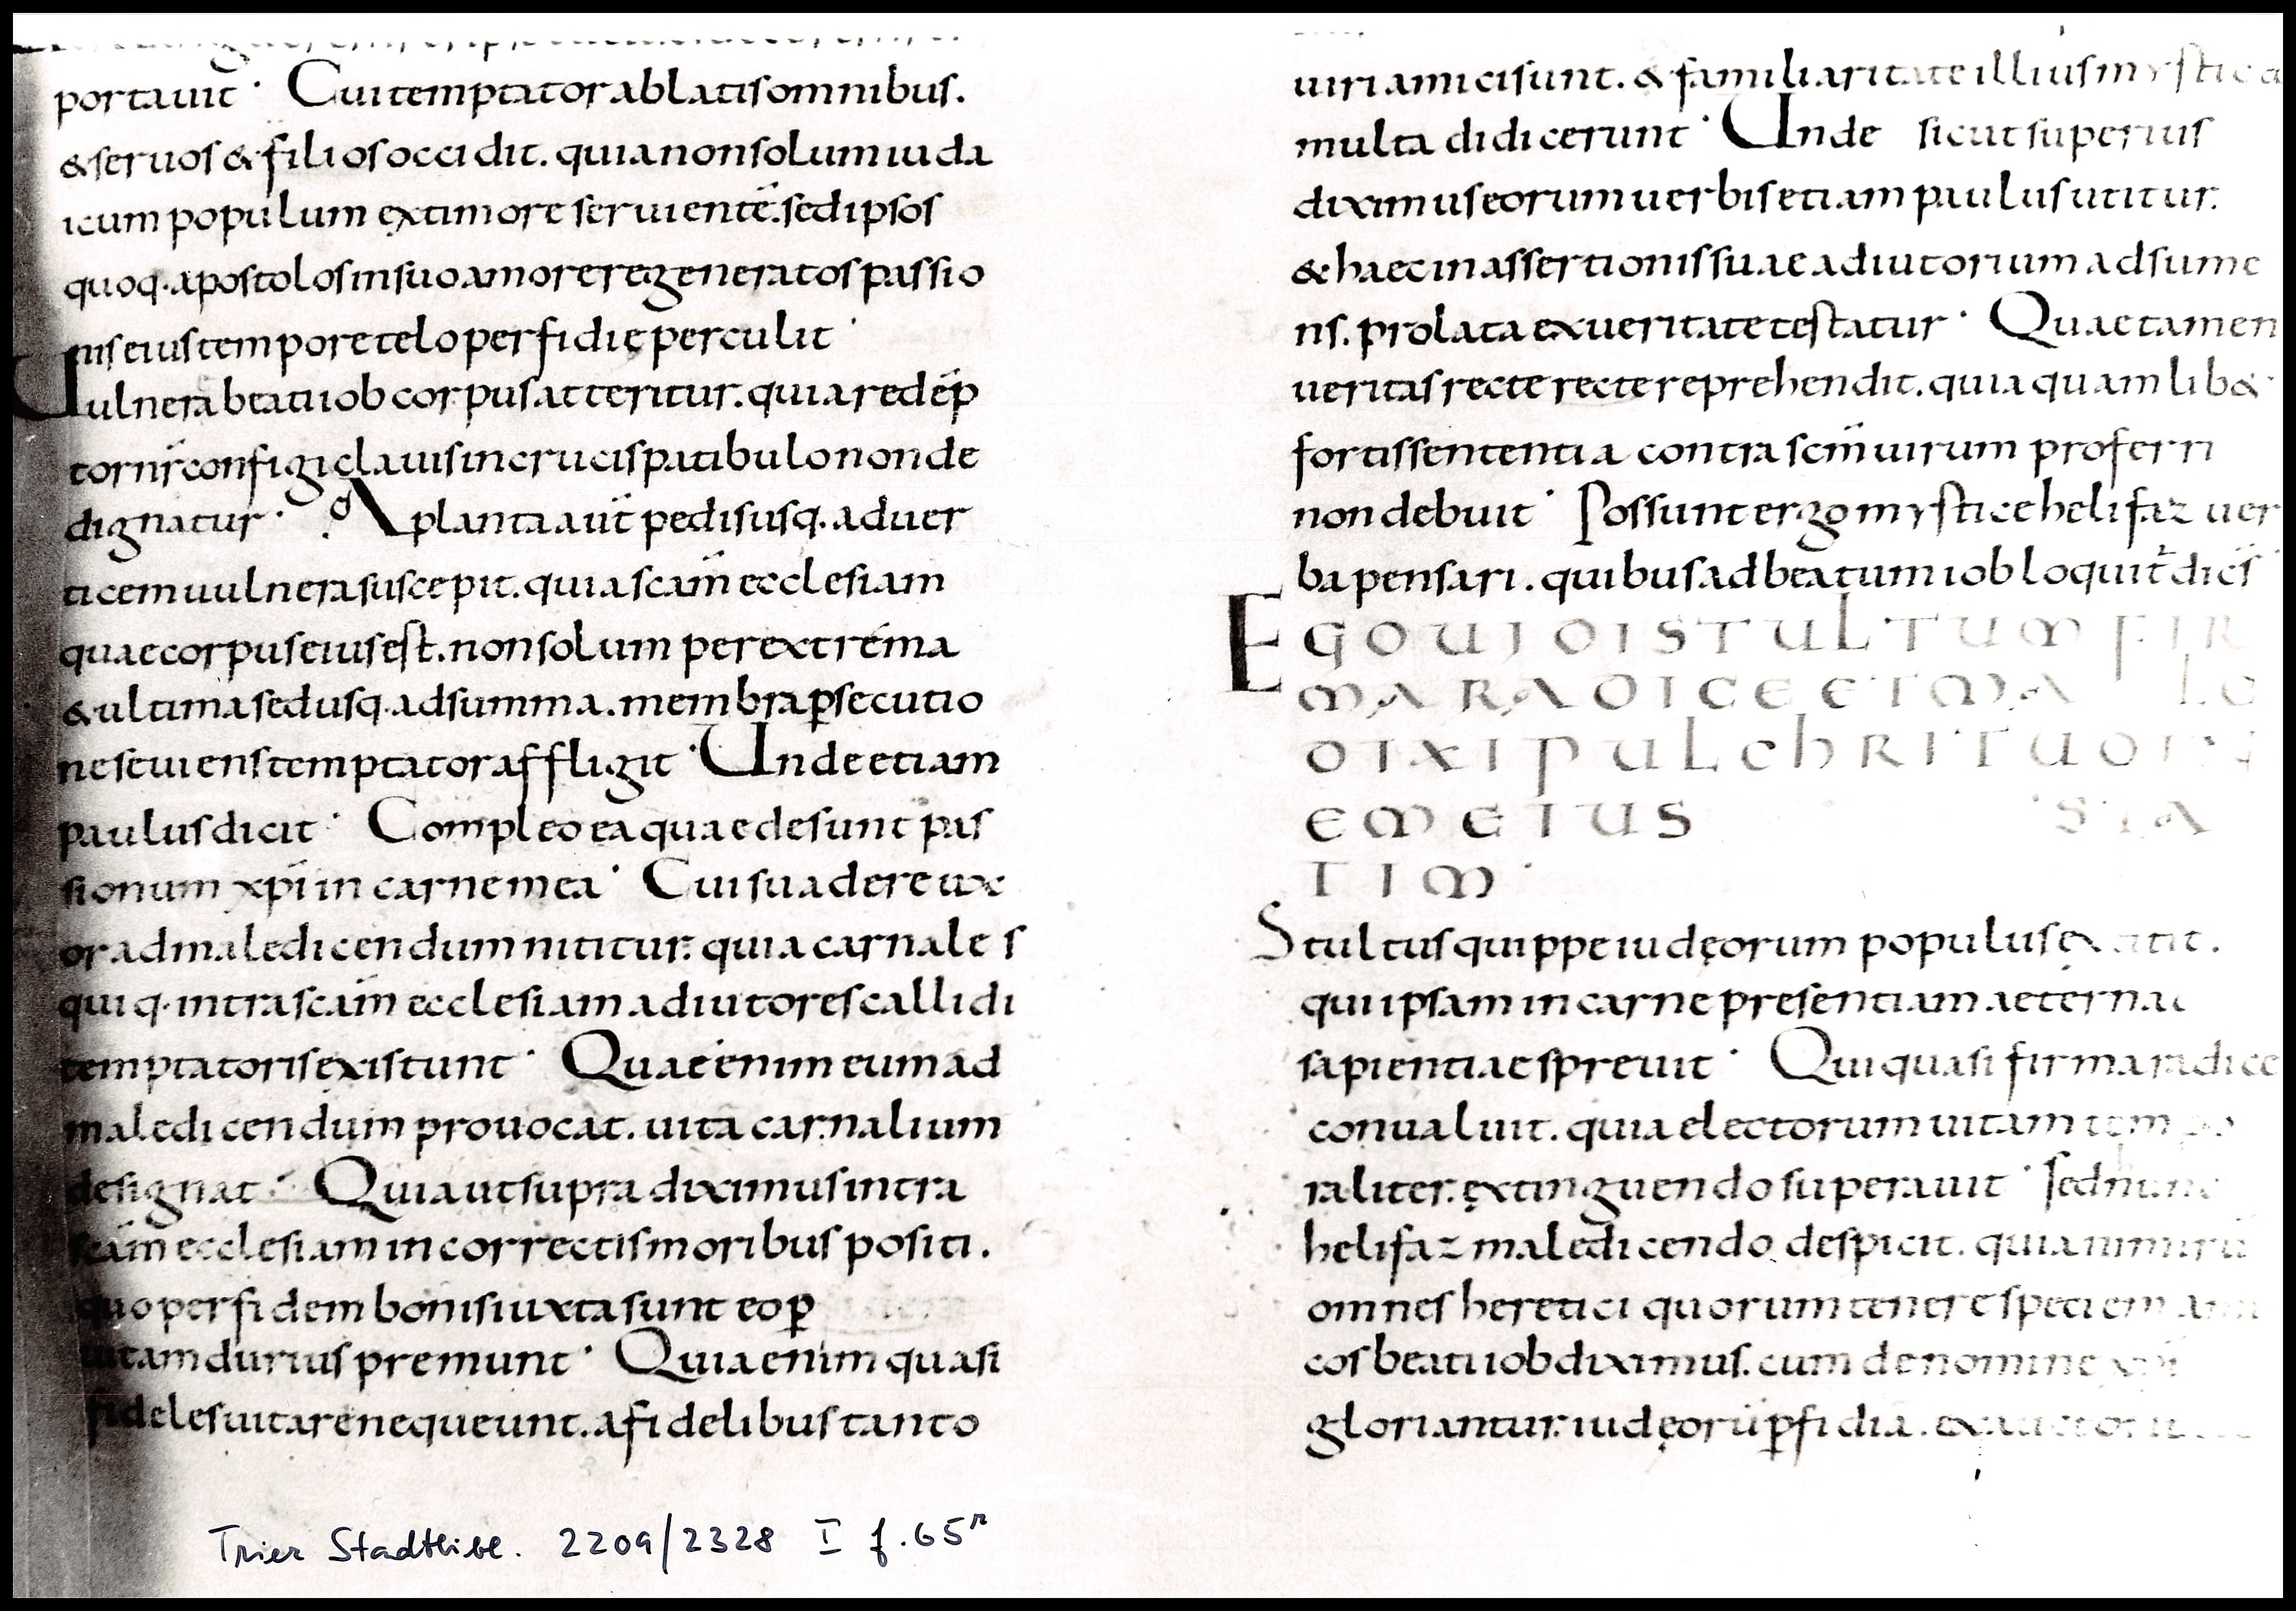 portauit · Cui temptator ablatis omnibus.
& seruos & filios occidit. quia non solum iuda
icum populum ex timore seruientē. sed ipsos
quoq· apostolos in suo amore regeneratos passio
nis eius tempore telo perfidię perculit ·
Uulnera beati iob corpus atteritur. quia redēp
tor nr̄ configi clauis in crucis patibulo non de
dignatur · A planta aūt pedis usq· ad uer
ticem uulnera suscepit. quia scām ecclesiam
quae corpus eius est. non solum per extrema
& ultima sed usq· ad summa. membra ꝑsecutio
ne seuiens temptator affligit · Unde etiam
paulus dicit · Compleo ea quae desunt pas
sionum xpī in carne mea · Cui suadere ux
or ad maledicendum nititur. quia carnales
quiq· intra scām ecclesiam adiutores callidi
temptatoris existunt · Quae enim eum ad
maledicendum prouocat. uita carnalium
designat · Quia ut supra diximus intra
scām ecclesiam incorrectis moribus positi.
quo per fidem bonis iuxta sunt eo ꝑ
uitam durius premunt · Quia enim quasi
fideles uitare nequeunt. a fidelibus tanto
uiri amici sunt. & familiaritate illius
multa didicerunt · Unde sicut superius
diximus eorum uerbis etiam paulus utitur.
& haec in assertionis suae adiutorium adsume
ns. prolata ex ueritate testatur · Quae tamen
ueritas recte recte reprehendit. quia quamlib&
fortis sententia contra scm̄ uirum proferri
non debuit · Possunt ergo mystice helifaz uer
ba pensari. quibus ad beatum iob loquit̄ dicēs
EGO UIDI STULTUM FIR
MA RADICE ET MA LE
DIXI PULCHRITUDIN
EM EIUS STA
TIM ·
Stultus quippe iudęorum populus
qui ipsam in carne presentiam aeternae
sapientiae spreuit · Qui quasi firma radice
conualuit. quia electorum uitam tempo
raliter. extinguendo superauit · Sed
helifaz maledicendo despicit. quia nimirū
omnes heretici quorum tenere speciem ami
cos beati iob diximus. cum de nomine xpī
gloriantur. iudęorū ꝑfidiā.
Trier Stadtbibl. 2209/2328 I f. 65r